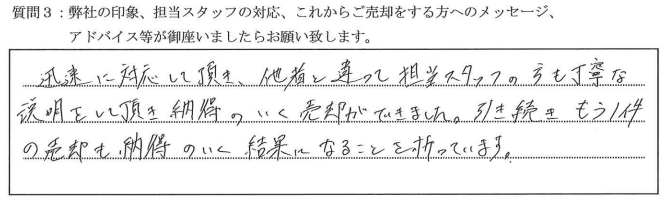 質問3：弊社の印象、担当スタッフの対応、これからご売却をする方へのメッセージ、
アドバイス等が御座いましたらお願い致します。
迅速に対応して頂き、他者と違って担当スタッフの方も丁寧な
説明をして頂き納得のいく売却ができました。引き続きもう1件
の売却も納得のいく結果になることを祈っています。